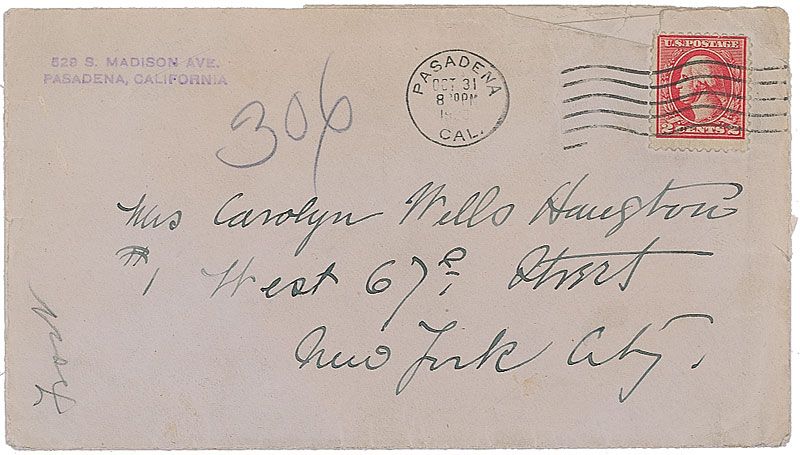 529 S. MADISON AVE.
PASADENA, CALIFORNIA
306
PASADENA
OCT 31
8 PM
CAL.
U.S. POSTAGE
2 CENTS 2
Mrs Carolyn Wells Hougton
#1 West 67th Street
New York City.